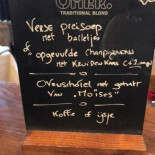 OMER.
TRADITIONAL BLOND
Verse preisoep
met balletjes
of
opgevulde champignons
met Kruidenkaas
Ovenschotel met gehakt
van "Moïses"
Koffie of ijsje